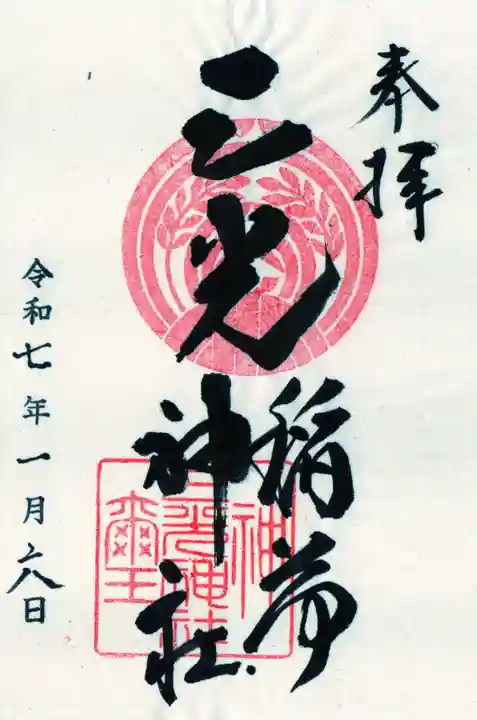 奉拝
三光
稲荷
神社
三光神社
神璽
令和七年一月二八日